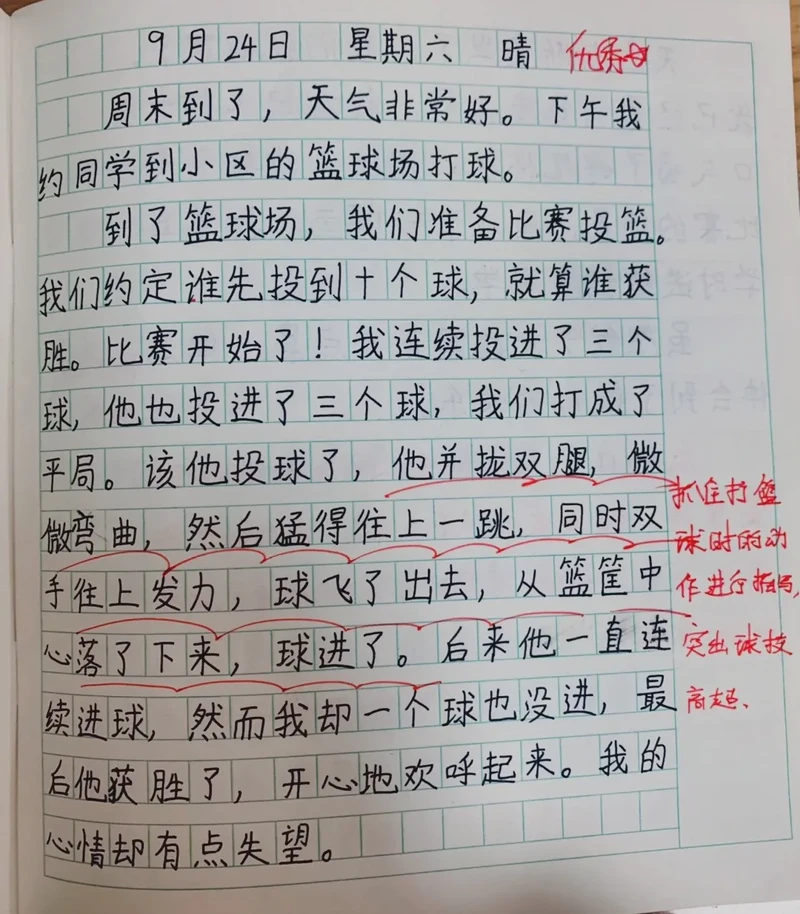 9月24日 星期六 晴 优秀
周末到了，天气非常好。下午我
约同学到小区的篮球场打球。
到了篮球场，我们准备比赛投篮。
我们约定谁先投到十个球，就算谁获
胜。比赛开始了！我连续投进了三个
球，他也投进了三个球，我们打成了
平局。该他投球了，他并拢双腿，微
微弯曲，然后猛得往上一跳，同时双
手往上发力，球飞了出去，从篮筐中
心落了下来，球进了。后来他一直连
续进球，然而我却一个球也没进，最
后他获胜了，开心地欢呼起来。我的
心情却有点失望。
抓住打篮
球时的动
作进行描写，
突出球技
高超、